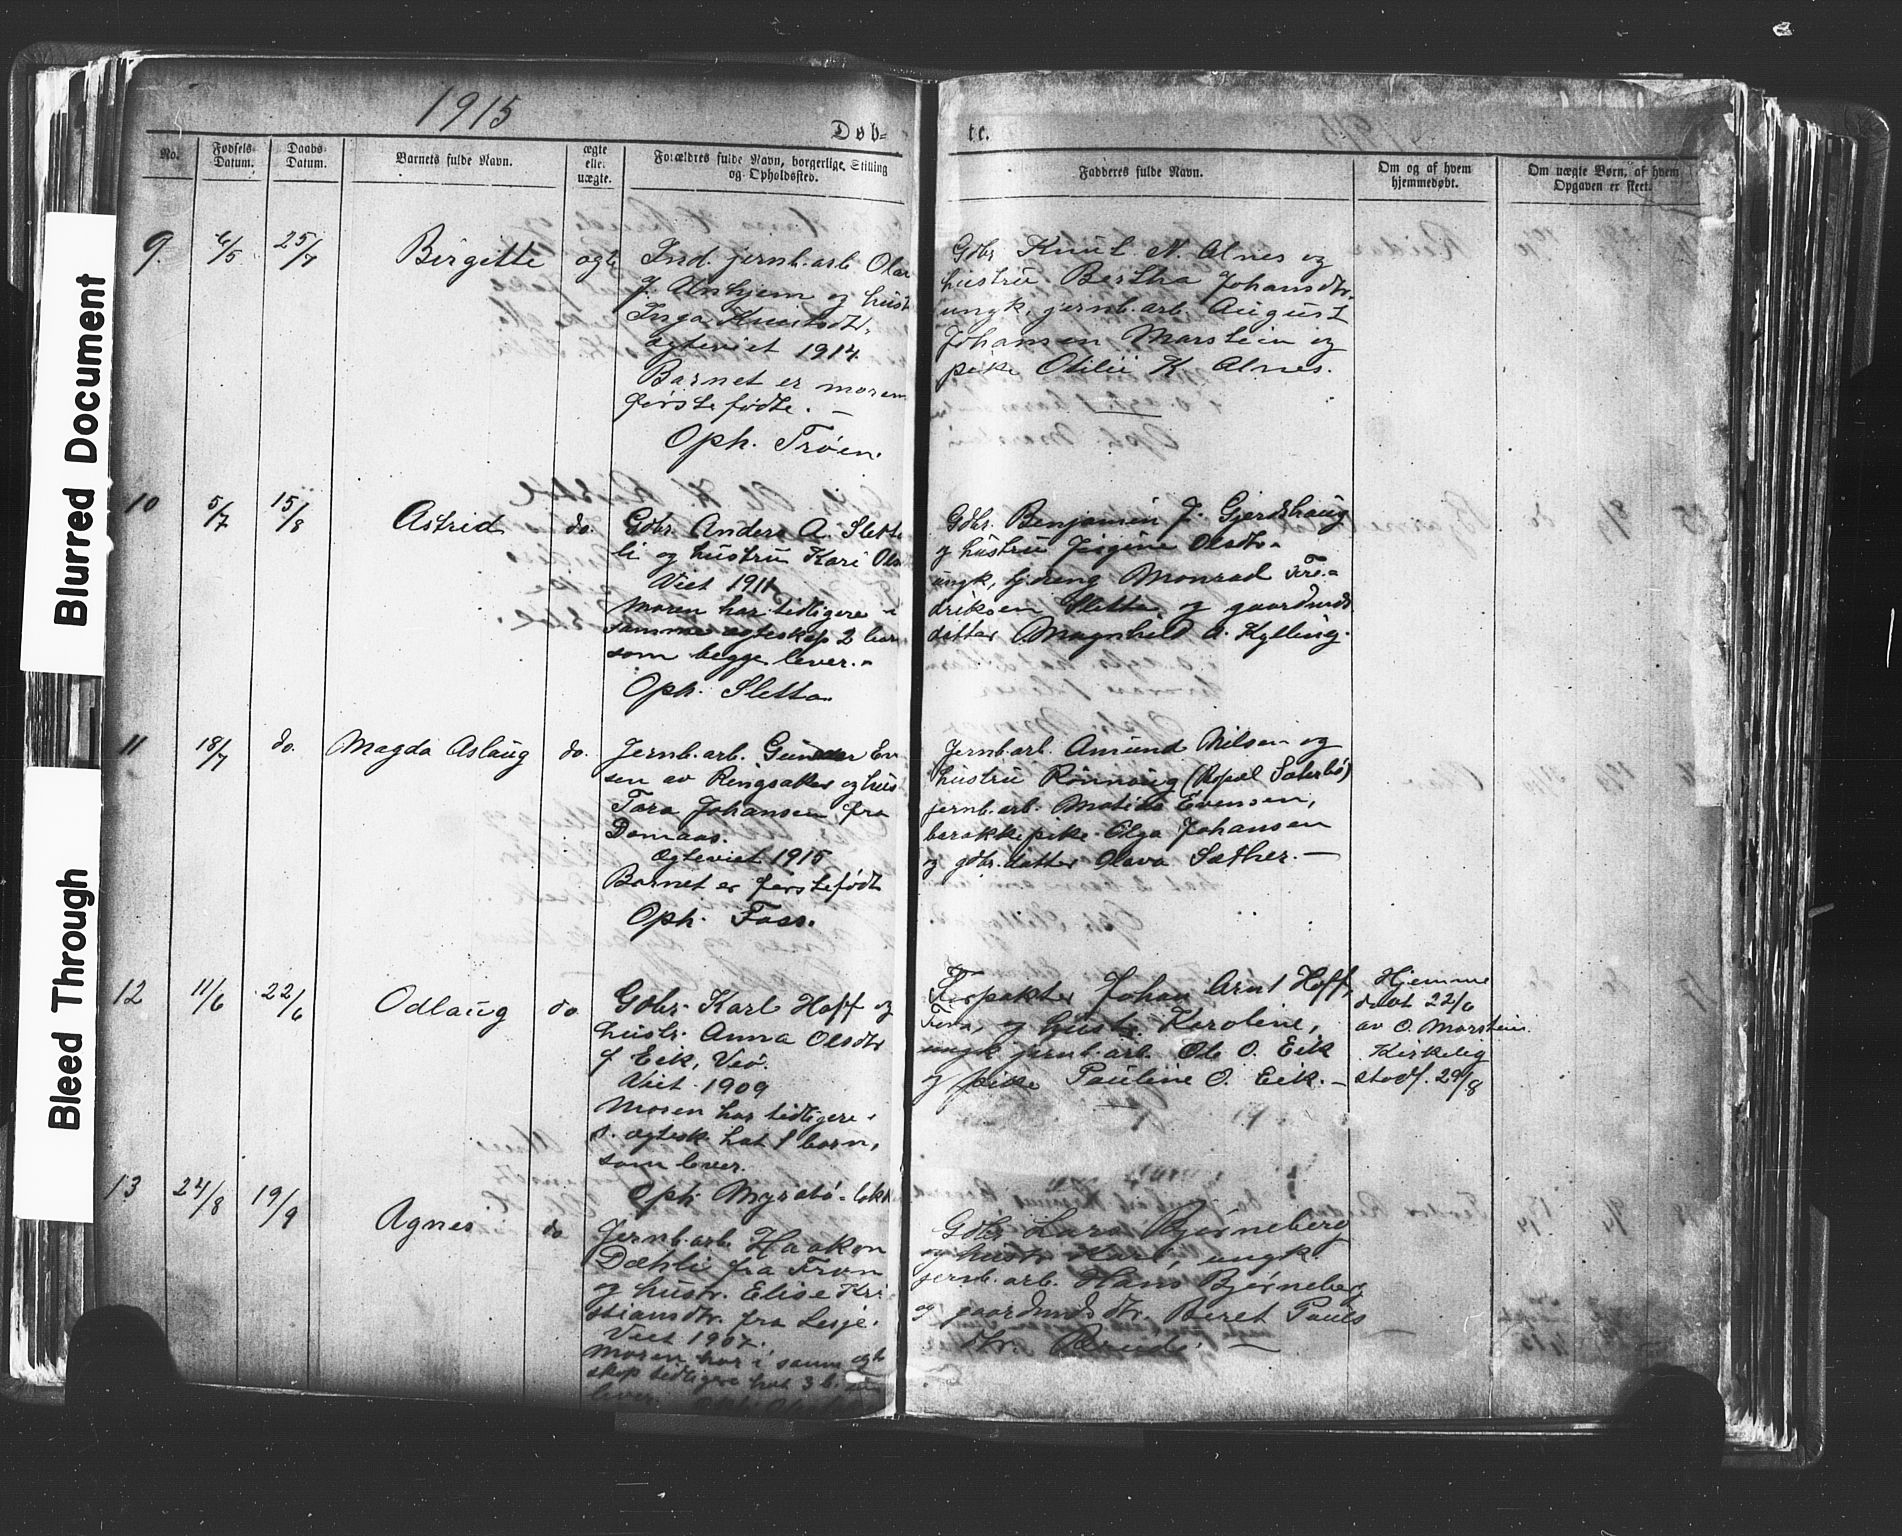 Blurred Document
Bleed Through
1915
Døb=
te.
No.
Fødsels-
Datum.
Daabs-
Datum.
Barnets fulde Navn.
ægte
elle.
uægte.
Forældres fulde Navn, borgerlige Stilling
og Opholdssted.
Fadderes fulde Navn.
Om og af hvem
hjemmedøbt.
Om uægte Børn, af hvem
Opgaven er skeet.
9.
6/5
25/7
Birgitte
ægte
Ind. jernb. arb. Olav
J. Unhjem og hust
Inga Knutsdtr.
ægteviet 1914
Barnet er morens
førstefødte. —
Oph. Trøen.
Gbr. Knut N. Alnes og
hustru Bertha Johansdtr.
ungk. jernb. arb. August
Johansen Marstein og
pike Otilie K. Alnes.
10
5/7
15/8
Astrid
do.
Gbr. Anders A. Slette
li og hustru Kari Ols
Viet 1911
Moren har tidligere i
samme ægteskap 2 barn
som begge lever. -
Oph. Sletta.
Gbr. Benjamin J. Gjerdshaug
og hustru Olsdtr.
ungk. Monrad Fre-
driksen Sletta og gaardmds
datter Magnhild A. Kylling.
11
18/7
do.
Magda Aslaug
do.
Jernb. arb. Gunder Ev
sen av Ringsaker og hus
Tora Johansen fra
Domaas.
Ægteviet 1915
Barnet er førstefødt
Oph. Foss.
Jernb. arb. Amund Nilsen og
hustru Rønnaug
jernb. arb. Evensen,
barakkepike Olga Johansen
og gbr. datter Olava Sæther. —
12
11/6
22/6
Odlaug
do
Gbr. Karl Hoff og
hustr. Anna Olsdtr
f Eik, Veø.
Viet 1909
Moren har tidligere i
s. ægtesk. hat 1 barn,
som lever.
Oph. Myrabø
Forpakter Johan Arnt Hoff,
og hustr. Karoline,
ungk jernb. arb. Ole O. Eik
og pike Pauline O. Eik. —
Hjemme
døbt 22/6
av O. Marstein
Kirkelig
stadf. 29/8
13
24/8
19/9
Agnes
do
Jernb. arb. Haakon
Dæhli fra Fron
og hustr. Elise Kri
stiansdtr. fra Lesje.
Viet 1907.
Moren har i samm ægte
skap tidligere hat 3 b. som
lever.
Gbr. Lars Bjørneberg
og hustr. Kari, ungk.
jernb. arb. Hans Bjørneberg
og gaardmds dtr. Beret Pauls
dtr. —